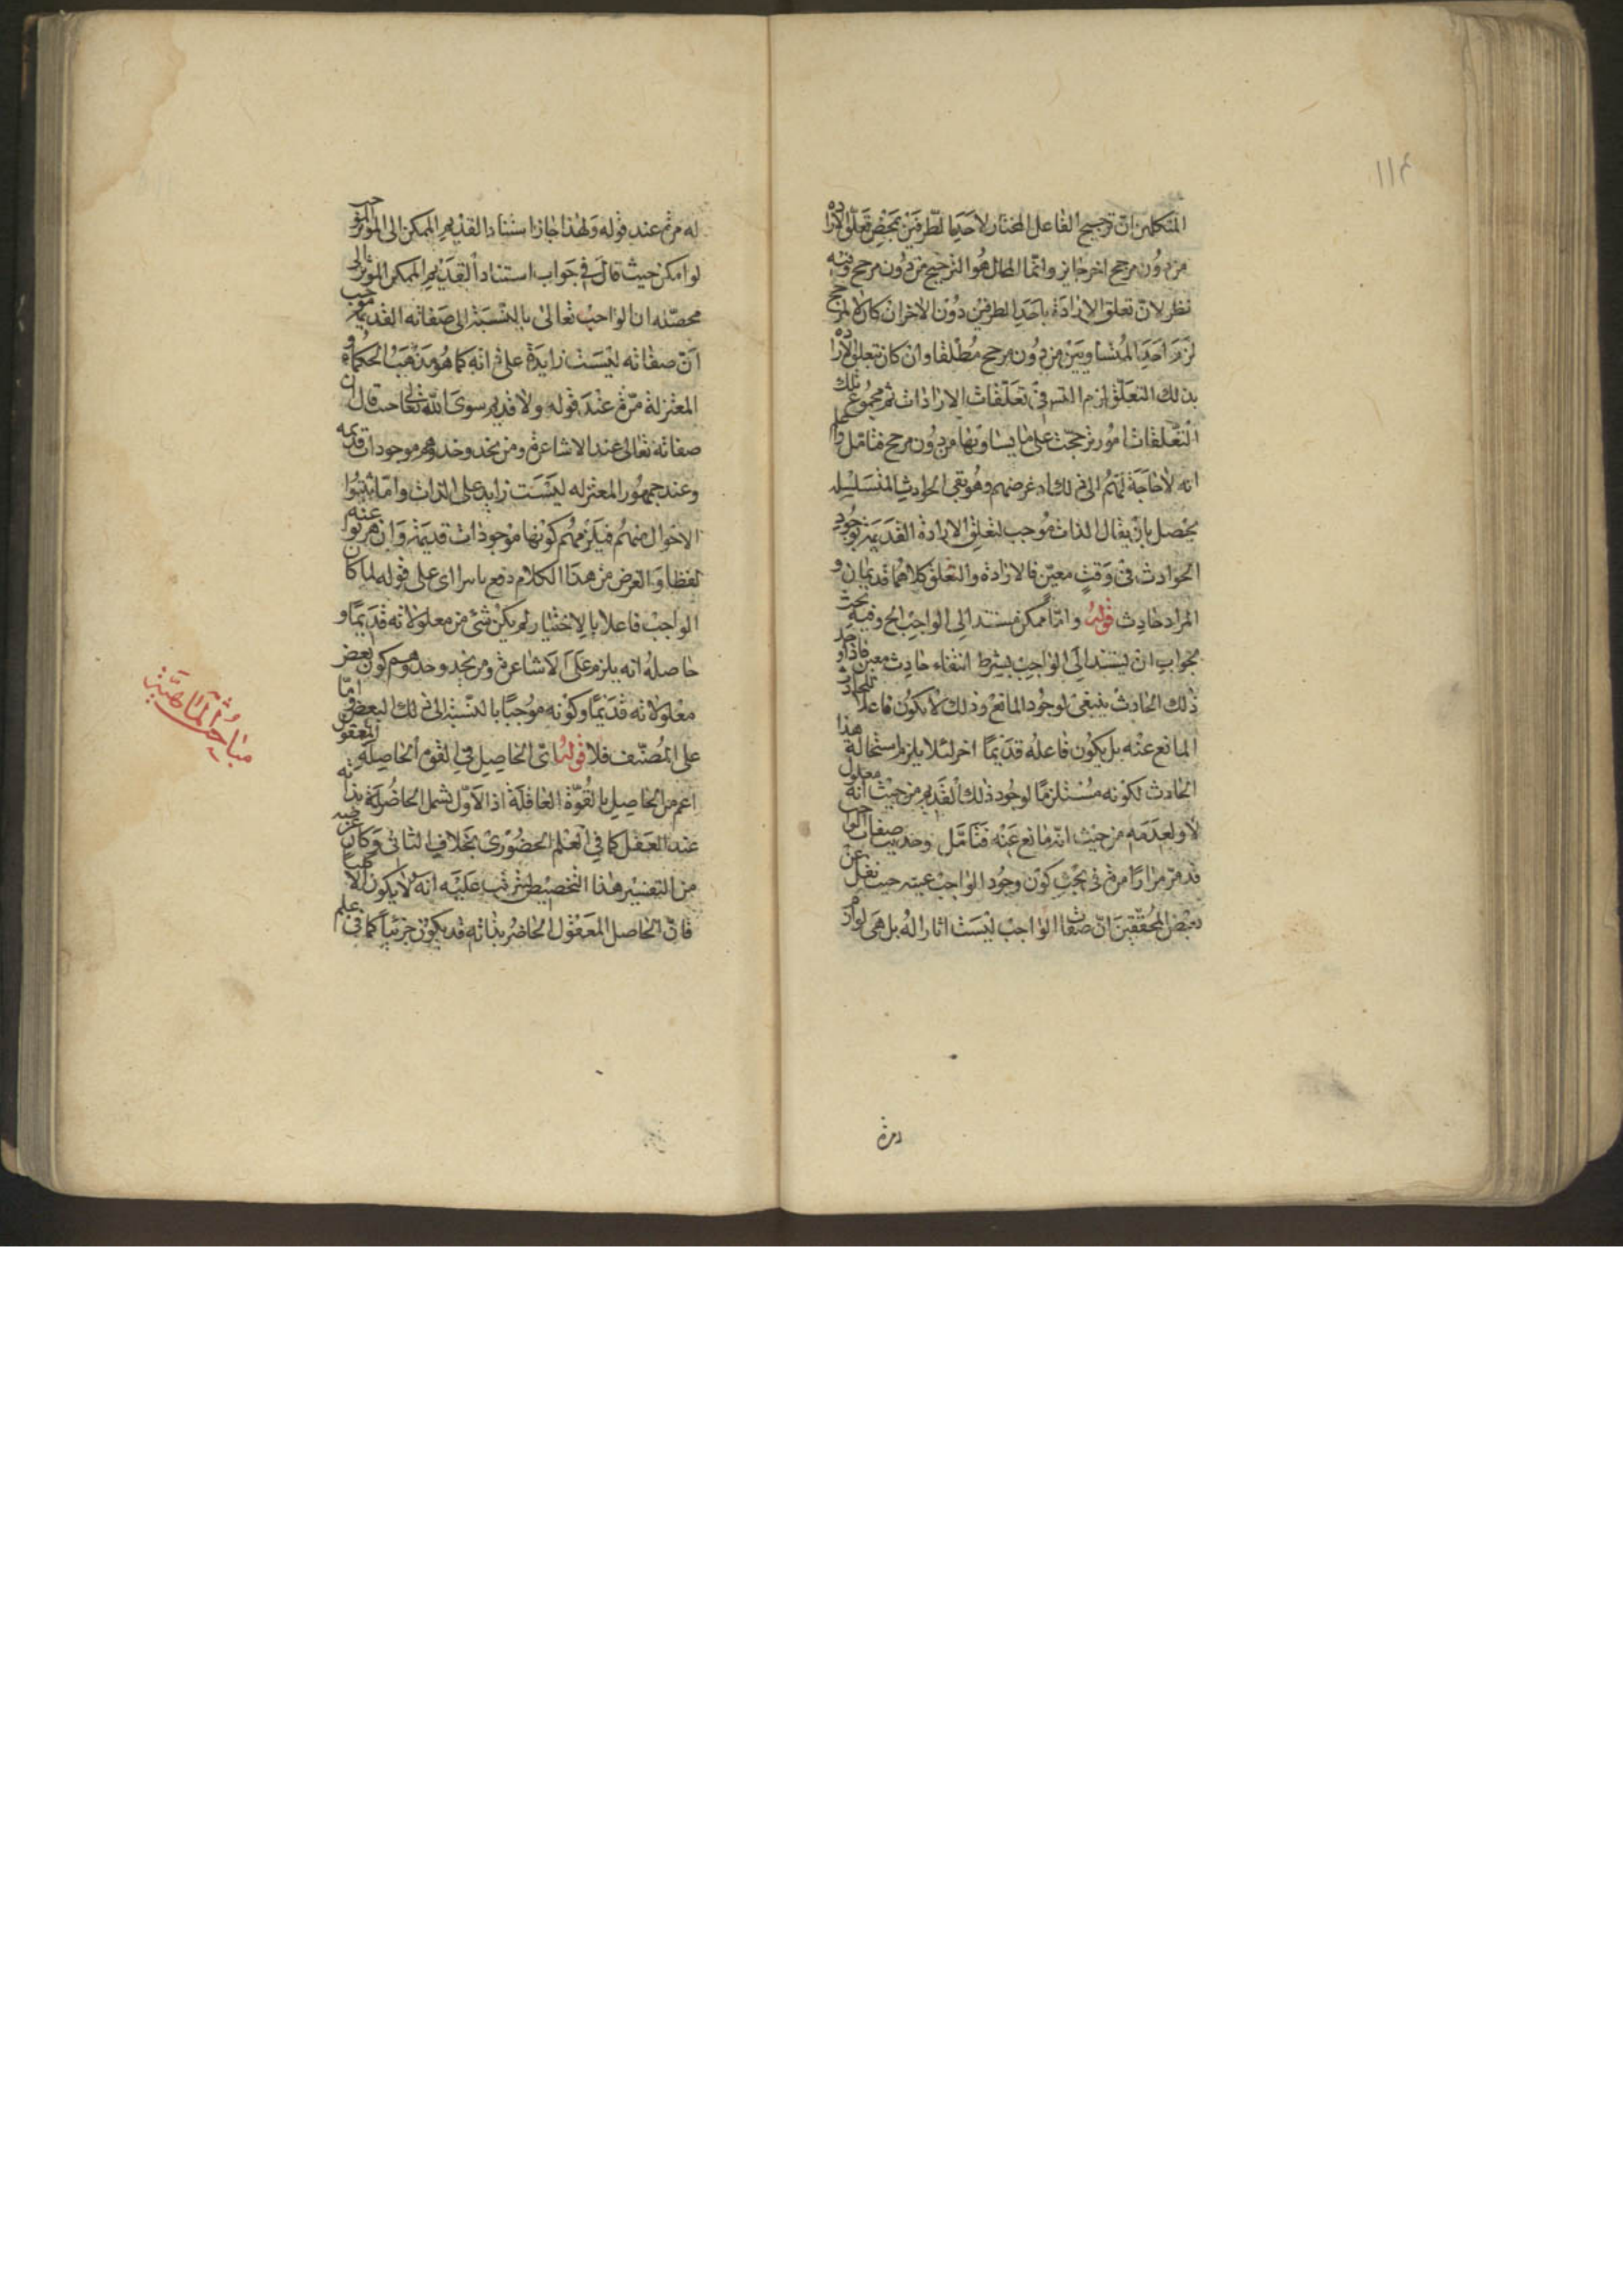 ١١٤
المتكلمين ان ترجيح الفاعل المختار لاحد الطرفين بمحض تعلق الارادة
من دون مرجح اخر جايز وانما المحال هو الترجح من دون مرجح وفيه
نظر لان تعلق الارادة باحد الطرفين دون الاخر ان كان لا لمرجح
لزم احد المتساويين من دون مرجح مطلقا وان كان تعلق الارادة
بذلك التعلق لزم التس في تعلقات الارادات ثم مجموع تلك
التعلقات امور ترجحت على ما يساويها من دون مرجح فتامل واعلم
انه لا حاجة لهم الى ذلك اذ غرضهم وهو نفي الحوادث المتسلسلة
يحصل بان يقال الذات موجب لتعلق الارادة القديمة بوجود
الحوادث في وقت معين فالارادة والتعلق كلاهما قديمان و
المراد حادث قوله واما ممكن مستند الى الواجب الخ وفيه بحث
بجواب ان يستند الى الواجب بشرط انتفاء حادث معين فاذا وجد
ذلك الحادث ينبغي لوجود المانع وذلك لا يكون فاعلا للحادث
المانع عنه بل يكون فاعله قديما اخر لئلا يلزم استحالة هذا
الحادث لكونه مستلزما لوجود ذلك القديم من حيث انه معلول
لا ولعدمه من حيث انه مانع عنه فتامل وحديث صفات الواجب
قد مر مرارا مرة في بحث كون وجود الواجب عينه حيث نقل عن
بعض المحققين ان صفات الواجب ليست اثارا له بل هي لوازم
ومرة
له مرة عند قوله ولهذا جاز استناد القديم الممكن الى المؤثر الموجب
لو امكن حيث قال في جواب استناد القديم الممكن المؤثر الى
محصله ان الواجب تعالى بالنسبة الى صفاته القديمة موجب
ان صفاته ليست زايدة على ذاته كما هو مذهب الحكماء و
المعتزلة مرة عند قوله ولا قديم سوى الله تعالى حيث قال ان
صفاته تعالى عند الاشاعرة ومن يحذو حذوهم موجودات قديمه
وعند جمهور المعتزله ليست زايد على الذات واما مثبتوا
الاحوال منهم فيلزمهم كونها موجودات قديمة وان هربوا عنه
لفظا والغرض من هذا الكلام دفع ما سرا اى على قوله لما كان
الواجب فاعلا بالاختيار لم يكن شئ من معلولاته قديما و
حاصله انه يلزم على الاشاعرة ومن يحذو حذوهم كون بعض
معلولاته قديما وكونه موجبا بالنسبة الى ذلك البعض واما
على المصنف فلا قوله اى الحاصل في القوة الحاصلة المعقول
اعم من الحاصل بالقوة العاقلة اذ الاول تشمل الحاضرة بذاته
عند العقل كما في العلم الحضورى بخلاف الثانى وكان غرضه
من التفسير هذا التخصيص ليترتب عليه انه لا يكون الا كليا
فان الحاصل المعقول الحاضر بذاته قد يكون جزئيا كما في علم
مباحث الماهية